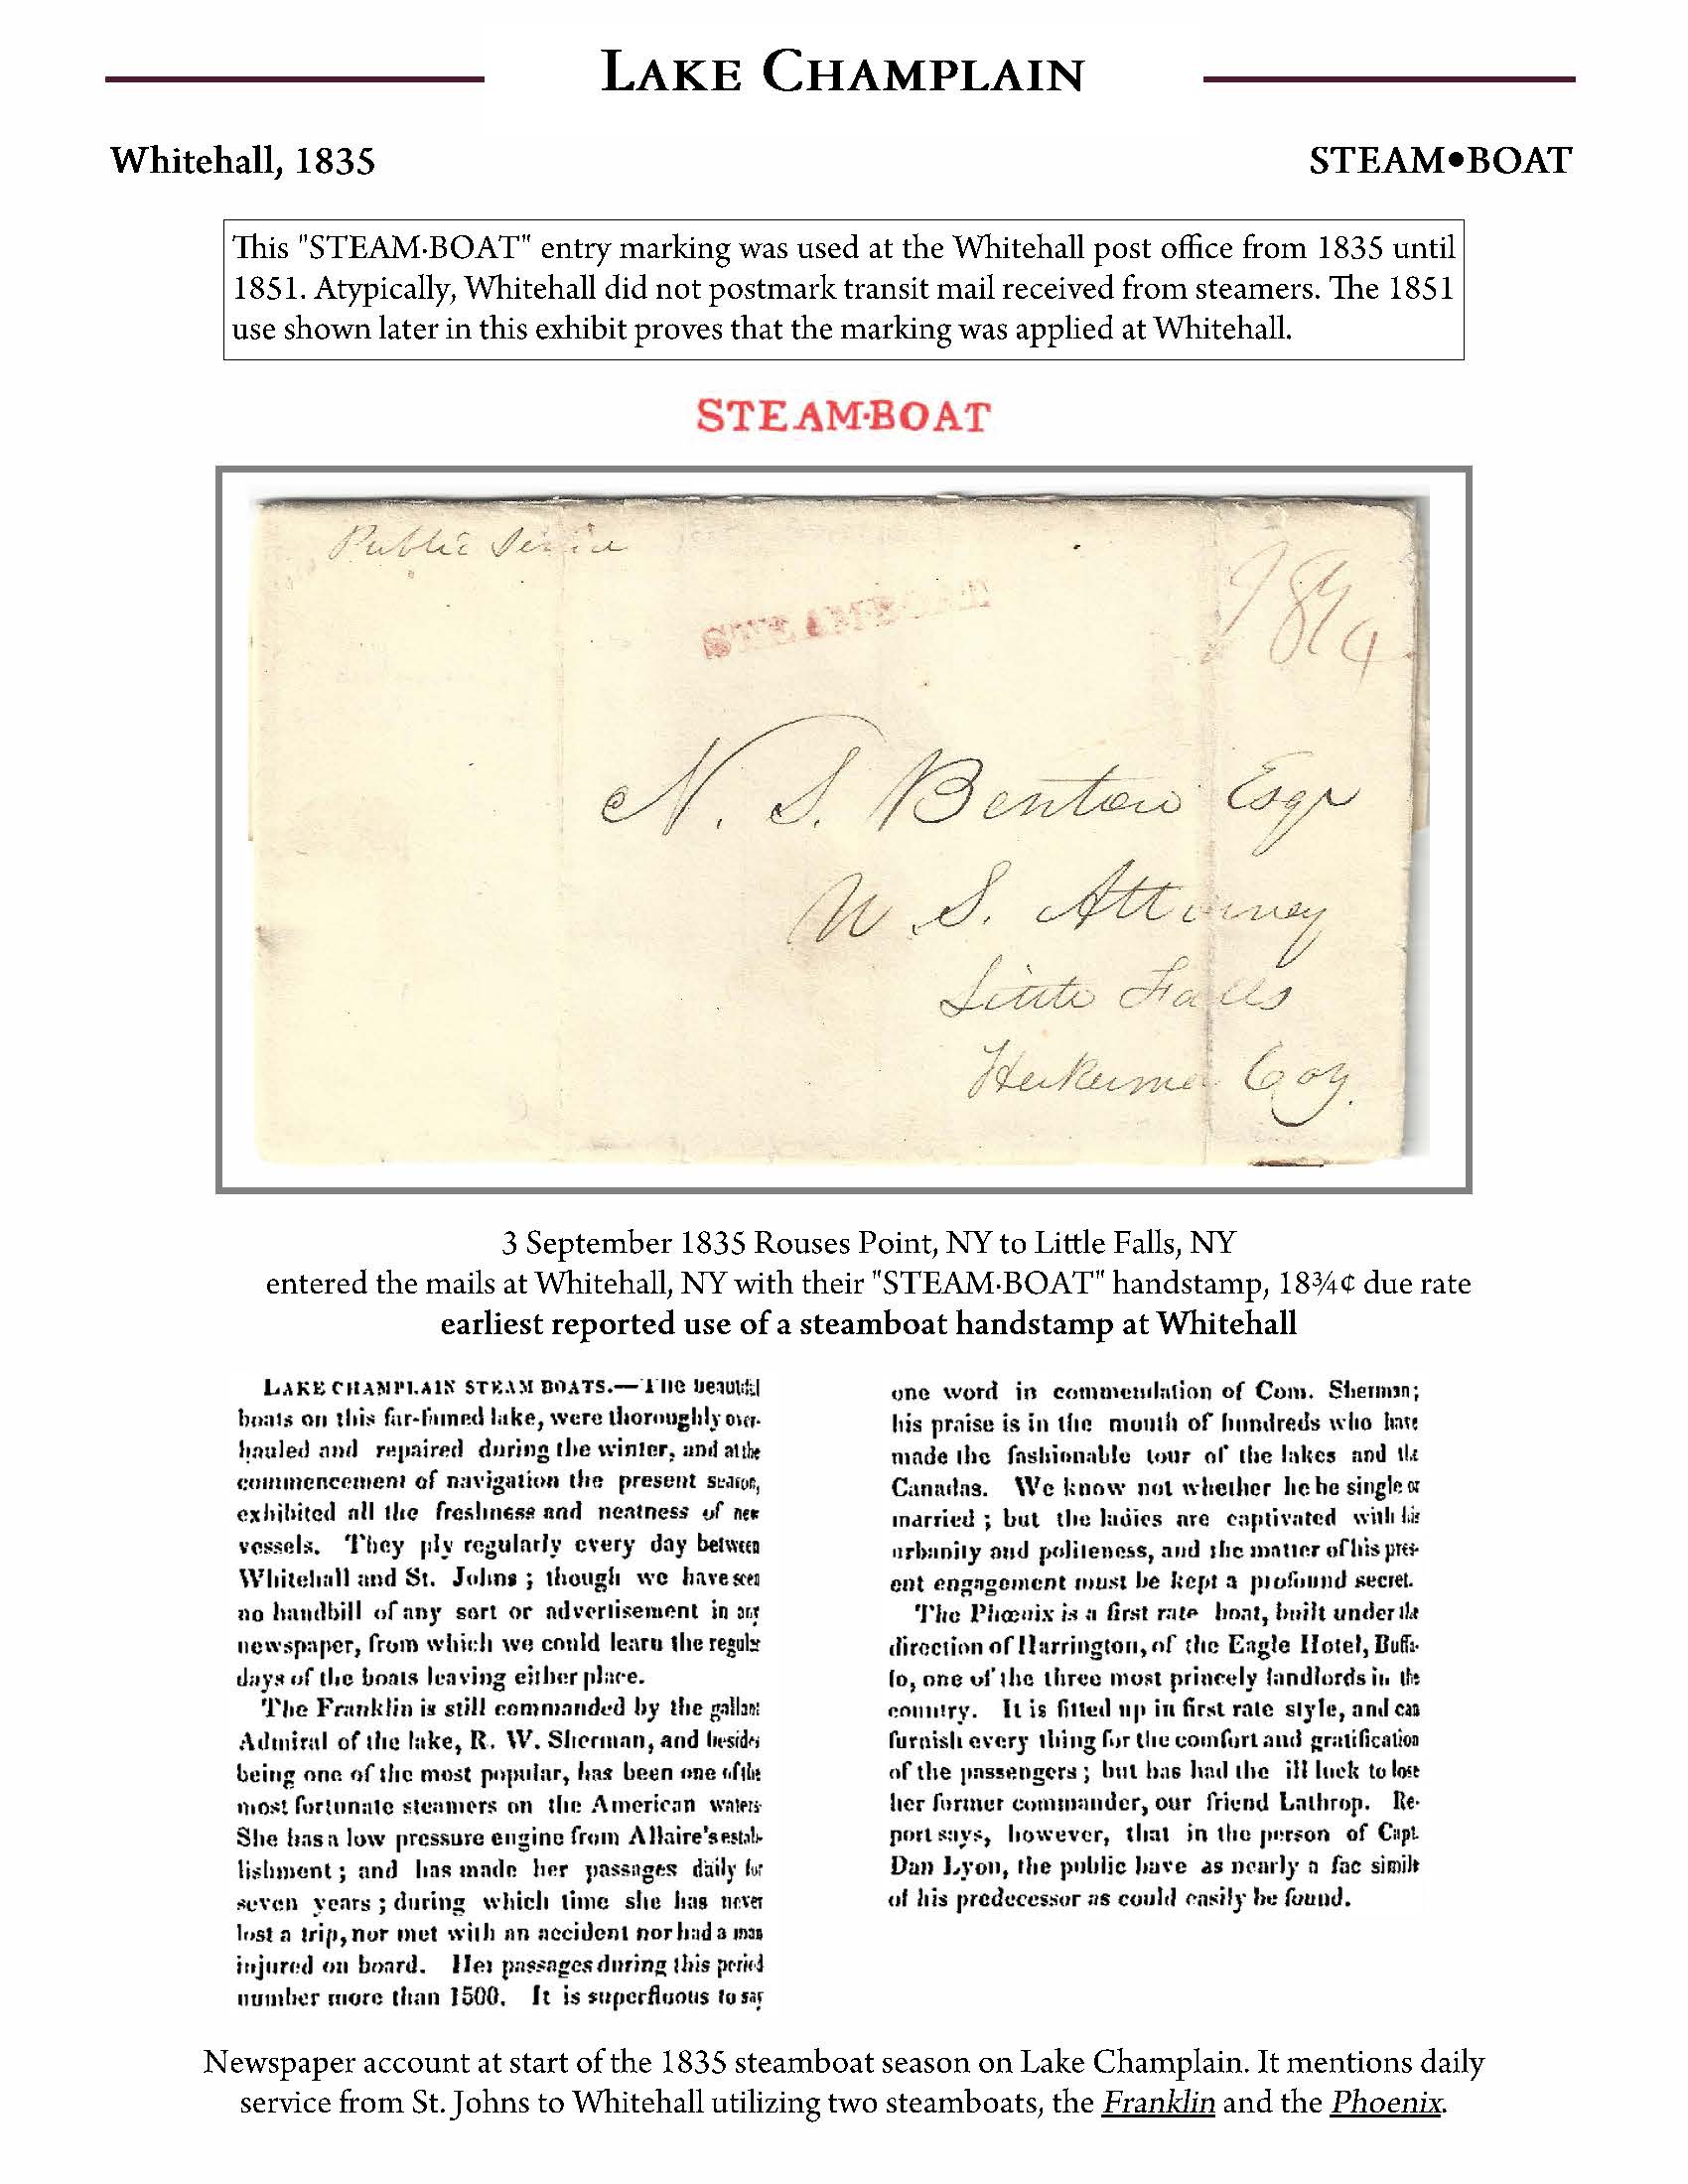 LAKE CHAMPLAIN
Whitehall, 1835
STEAM●BOAT
This "STEAM·BOAT" entry marking was used at the Whitehall post office from 1835 until
1851. Atypically, Whitehall did not postmark transit mail received from steamers. The 1851
use shown later in this exhibit proves that the marking was applied at Whitehall.
STEAM·BOAT
Public Service
STEAMBOAT
18¾
N. S. Benton Esqr
U S. Attorney
Little Falls
Herkimer Coy.
3 September 1835 Rouses Point, NY to Little Falls, NY
entered the mails at Whitehall, NY with their "STEAM·BOAT" handstamp, 18¾¢ due rate
earliest reported use of a steamboat handstamp at Whitehall
LAKE CHAMPLAIN STEAM BOATS.—The beautiful
boats on this far-famed lake, were thoroughly over-
hauled and repaired during the winter, and at the
commencement of navigation the present season,
exhibited all the freshness and neatness of new
vessels. They ply regularly every day between
Whitehall and St. Johns ; though we have seen
no handbill of any sort or advertisement in any
newspaper, from which we could learn the regular
days of the boats leaving either place.
The Franklin is still commanded by the gallant
Admiral of the lake, R. W. Sherman, and besides
being one of the most popular, has been one of the
most fortunate steamers on the American waters.
She has a low pressure engine from Allaire's estab-
lishment ; and has made her passages daily for
seven years ; during which time she has never
lost a trip, nor met with an accident nor had a man
injured on board. Her passages during this period
number more than 1500. It is superfluous to say
one word in commendation of Com. Sherman;
his praise is in the mouth of hundreds who have
made the fashionable tour of the lakes and the
Canadas. We know not whether he be single or
married ; but the ladies are captivated with his
urbanity and politeness, and the matter of his pres-
ent engagement must be kept a profound secret.
The Phœnix is a first rate boat, built under the
direction of Harrington, of the Eagle Hotel, Buffa-
lo, one of the three most princely landlords in the
country. It is fitted up in first rate style, and can
furnish every thing for the comfort and gratification
of the passengers ; but has had the ill luck to lose
her former commander, our friend Lathrop. Re-
port says, however, that in the person of Capt.
Dan Lyon, the public have as nearly a fac simile
of his predecessor as could easily be found.
Newspaper account at start of the 1835 steamboat season on Lake Champlain. It mentions daily
service from St. Johns to Whitehall utilizing two steamboats, the Franklin and the Phoenix.